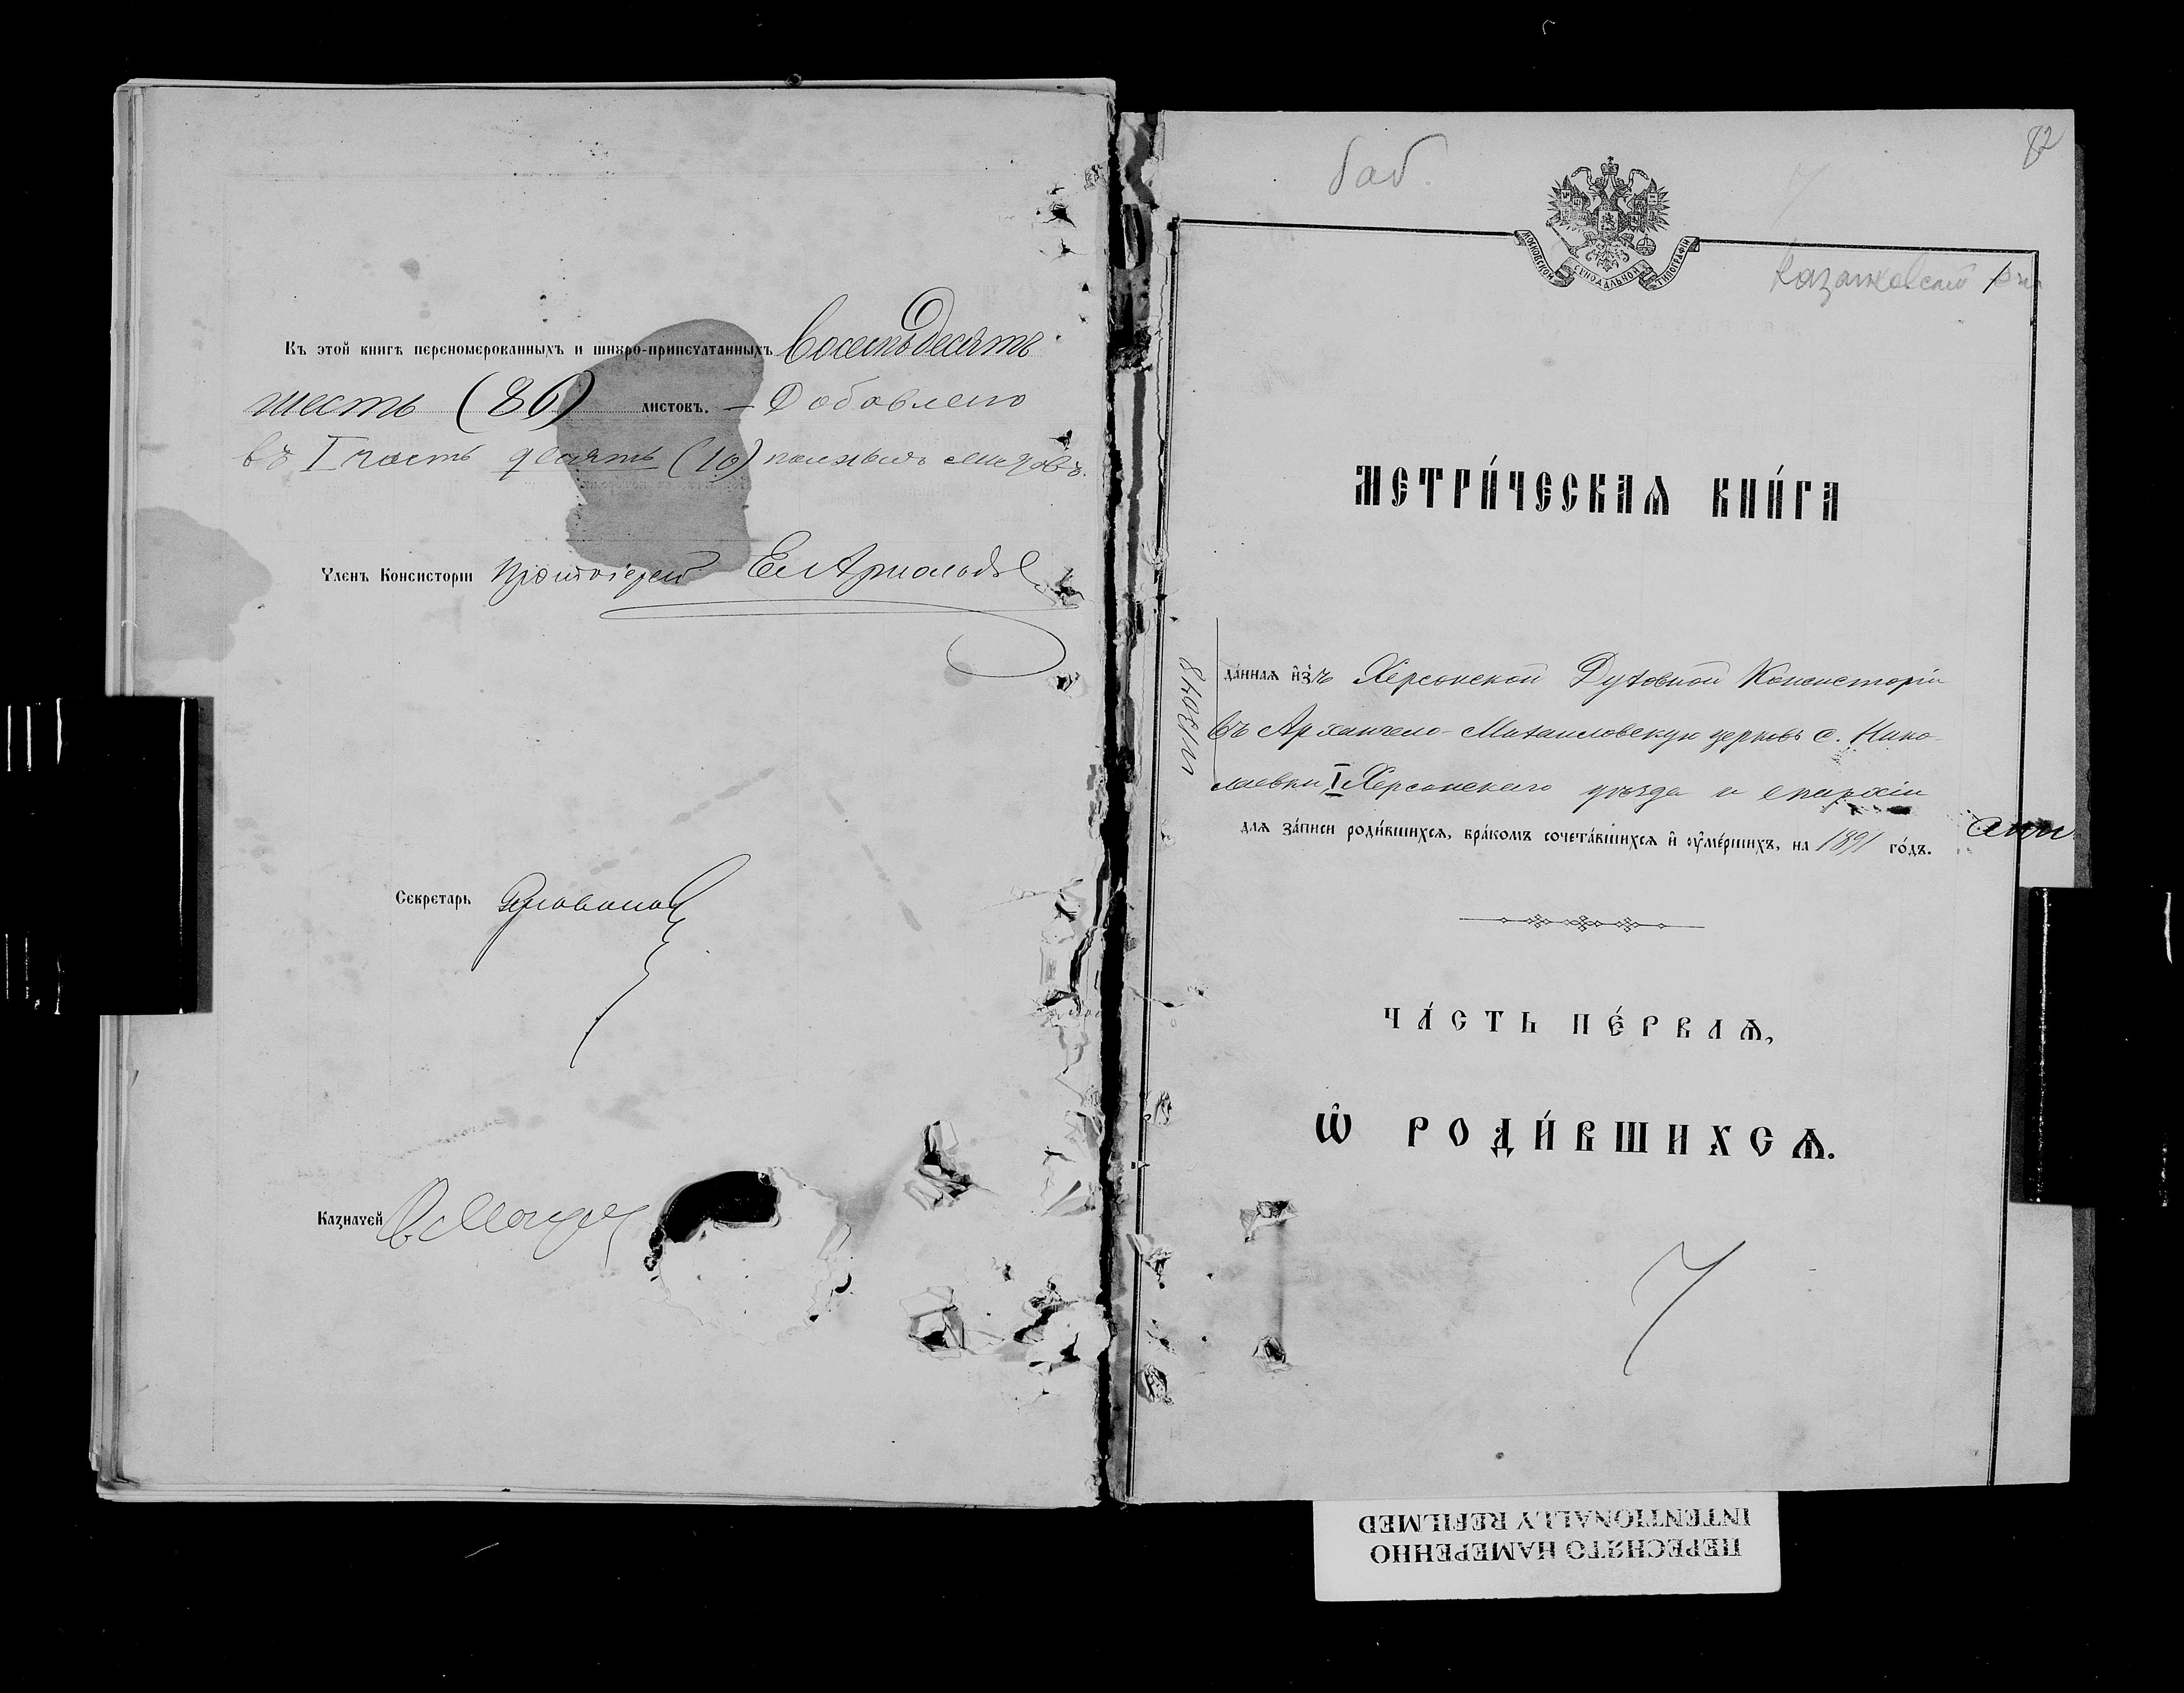 Въ этой книгѣ переномерованныхъ и шнуро-припечатанныхъ восемьдесятъ
шесть (86) листовъ. — Добавлено
въ I часть десять (10) полныхъ листовъ.
Членъ Консисторіи Протоіерей
Секретарь
Казначей
82
баб.
МОСКОВСКОЙ СУНОДАЛЬНОЙ ТИПОГРАФІИ
Казанковский
МЕТРИ́ЧЕСКАѦ КНИ́ГА
да́ннаѧ и҆зъ Херсонской Духовной Консисторіи
въ Архангело-Михаиловскую церковь с. Нико-
лаевки I Херсонскаго уѣзда и епархіи
длѧ за́писи роди́вшихсѧ, бра́комъ сочета́вшихсѧ и҆ ѹ҆ме́ршихъ, на 1891 го́дъ.
ЧА́СТЬ ПЕ́РВАѦ,
Ѡ҆ РОДИ́ВШИХСѦ.
7
ПЕРЕСНЯТО НАМЕРЕННО
INTENTIONALLY REFILMED